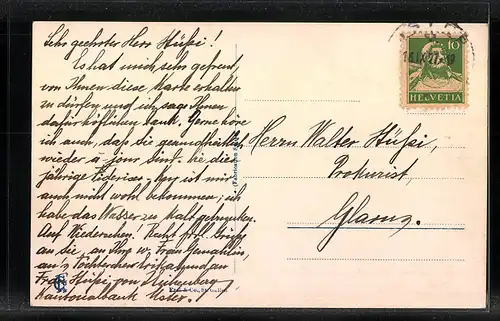 Sehr geehrter Herr Stüssi!
Es hat mich sehr gefreut,
von Ihnen diese Karte erhalten
zu dürfen und ich sage Ihnen
dafür höflichen Dank. Gerne höre
ich auch, daß Sie gesundheitlich
wieder à jour sind. Die dies-
jährige ist mir
auch nicht wohl bekommen; ich
habe das Wasser zu kalt getrunken.
Auf Wiedersehen. Recht frdl. Grüße
an Sie, an Ihre w. Frau Gemahlin,
an
Frau Stüssi, von
Kantonalbank
HELVETIA
10
Herrn Walter Stüssi,
Prokurist,
Glarus.